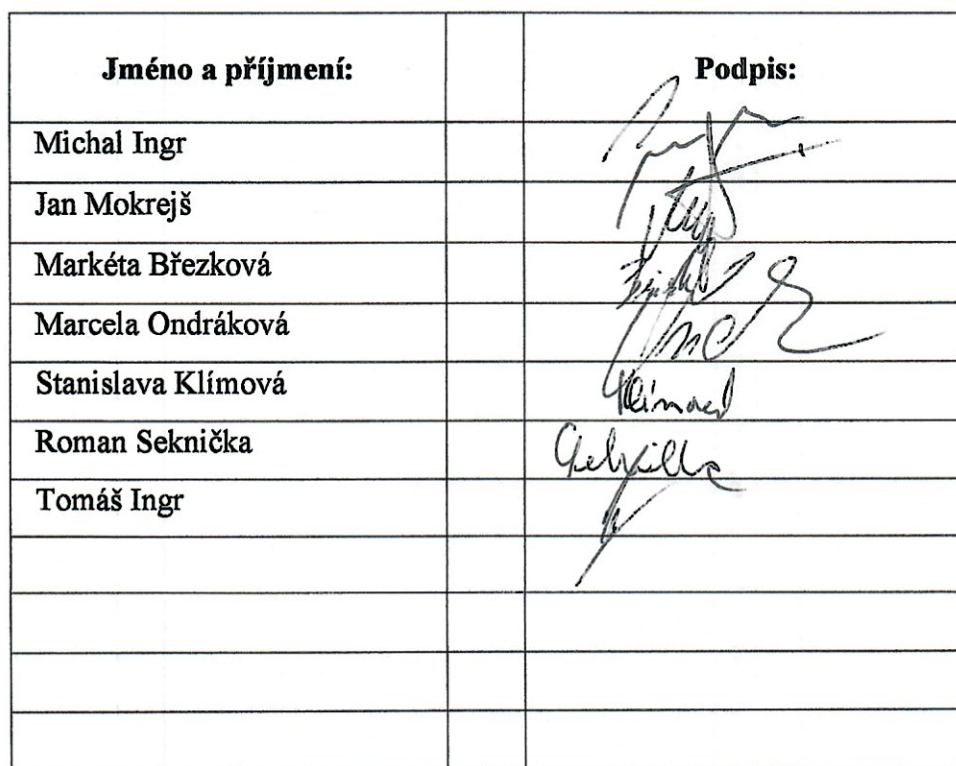 Jméno a příjmení: Podpis:
Michal Ingr
Jan Mokrejš
Markéta Březková
Marcela Ondráková
Stanislava Klímová Klímová
Roman Seknička
Tomáš Ingr